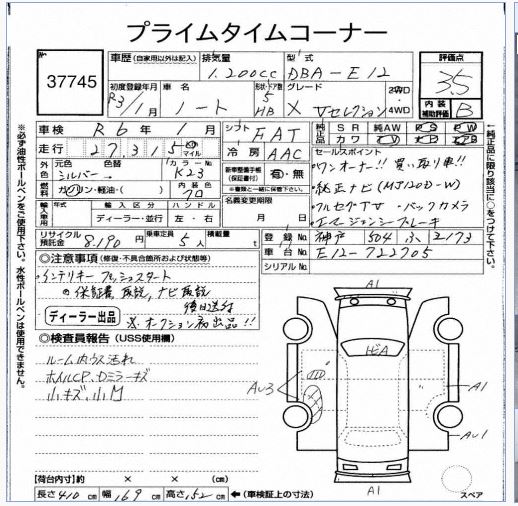 プライムタイムコーナー
37745
車歴 (自家用以外は記入)
排気量
1.200cc
型式
DBA-E12
評価点
3.5
内装補助評価 B
初度登録年月
R3/1月
車名
ノート
形状・ドア数
5
HB
グレード
X Vセレクション
2WD・4WD
車検 R6年1月
走行 27,315 km マイル
シフト FAT
冷房 AAC
純正品 SR 純AW PS PW
純正品 カワ TV ナビ エアB
外装 元色 シルバー 色替
カラーNo K23
燃料 ガソリン・軽油・( )
内装色 クロ
新車整備手帳(保証書付) 有・無
※書類と一緒に保管下さい。
セールスポイント
・ワンオーナー!! 買い取り車!!
・純正ナビ(MJ120D-W)
・フルセグTV ・バックカメラ
・エマージェンシーブレーキ
輸入車用 年モデル
輸入区分
ディーラー・並行
ハンドル
左・右
名義変更期限
月 日
リサイクル預託金 8,190円
乗車定員 5人
積載量 t
登録No 神戸 504 ふ 2173
車台No E12-722705
シリアルNo
◎注意事項 (修復・不具合箇所および状態等)
・インテリキー プッシュスタート
◎保証書 取説,ナビ取説
後日送付
ディーラー出品
※オークション初出品!!
◎検査員報告 (USS使用欄)
ルーム内ウス汚れ
ホイルCP、Dミラーキズ
小キズ、小凹
A1
ヒA
AU3
A1
AU1
A1
スペア
【荷台内寸】約 × × (cm)
長さ 410 cm 幅 169 cm 高さ 152 cm
←(車検証上の寸法)
※必ず油性ボールペンをご使用下さい。水性ボールペンは使用できません。
←純正品に限り該当に○をつけて下さい。